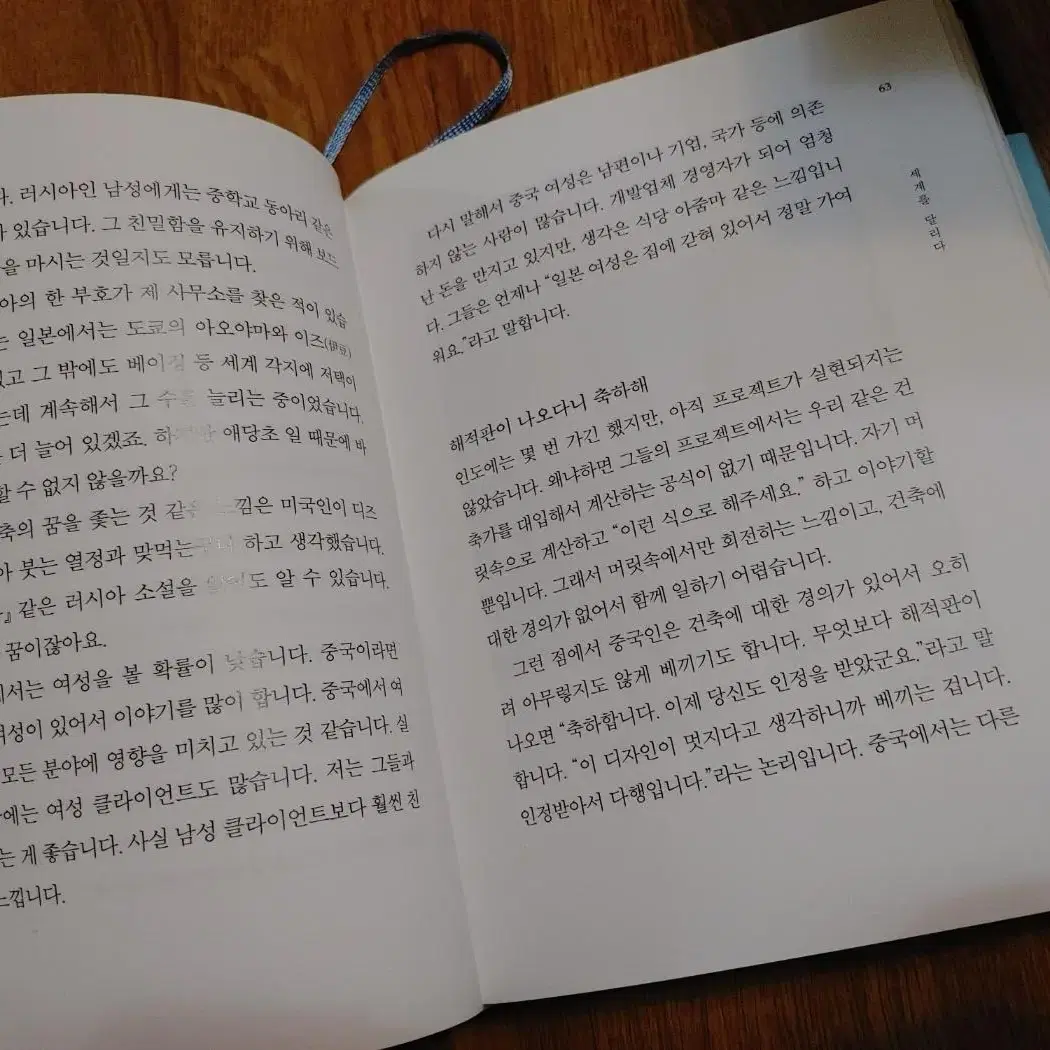 다. 러시아인 남성에게는 중학교 동아리 같은
가 있습니다. 그 친밀함을 유지하기 위해 보드
을 마시는 것일지도 모릅니다.
아의 한 부호가 제 사무소를 찾은 적이 있습
는 일본에서는 도쿄의 아오야마와 이즈(伊豆)
있고 그 밖에도 베이징 등 세계 각지에 저택이
는데 계속해서 그 수를 늘리는 중이었습니다.
더 늘어 있겠죠. 하지만 애당초 일 때문에 바
할 수 없지 않을까요?
축의 꿈을 좇는 것 같은 느낌은 미국인이 디즈
아 붓는 열정과 맞먹는구나 하고 생각했습니다.
』 같은 러시아 소설을 도 알 수 있습니다.
꿈이잖아요.
에서는 여성을 볼 확률이 낮습니다. 중국이라면
여성이 있어서 이야기를 많이 합니다. 중국에서 여
모든 분야에 영향을 미치고 있는 것 같습니다. 실
에는 여성 클라이언트도 많습니다. 저는 그들과
는 게 좋습니다. 사실 남성 클라이언트보다 훨씬 친
느낍니다.
63
세계를 달리다
다시 말해서 중국 여성은 남편이나 기업, 국가 등에 의존
하지 않는 사람이 많습니다. 개발업체 경영자가 되어 엄청
난 돈을 만지고 있지만, 생각은 식당 아줌마 같은 느낌입니
다. 그들은 언제나 “일본 여성은 집에 갇혀 있어서 정말 가여
워요.”라고 말합니다.
해적판이 나오다니 축하해
인도에는 몇 번 가긴 했지만, 아직 프로젝트가 실현되지는
않았습니다. 왜냐하면 그들의 프로젝트에서는 우리 같은 건
축가를 대입해서 계산하는 공식이 없기 때문입니다. 자기 머
릿속으로 계산하고 “이런 식으로 해주세요.” 하고 이야기할
뿐입니다. 그래서 머릿속에서만 회전하는 느낌이고, 건축에
대한 경의가 없어서 함께 일하기 어렵습니다.
그런 점에서 중국인은 건축에 대한 경의가 있어서 오히
려 아무렇지도 않게 베끼기도 합니다. 무엇보다 해적판이
나오면 “축하합니다. 이제 당신도 인정을 받았군요.”라고 말
합니다. “이 디자인이 멋지다고 생각하니까 베끼는 겁니다.
인정받아서 다행입니다.”라는 논리입니다. 중국에서는 다른